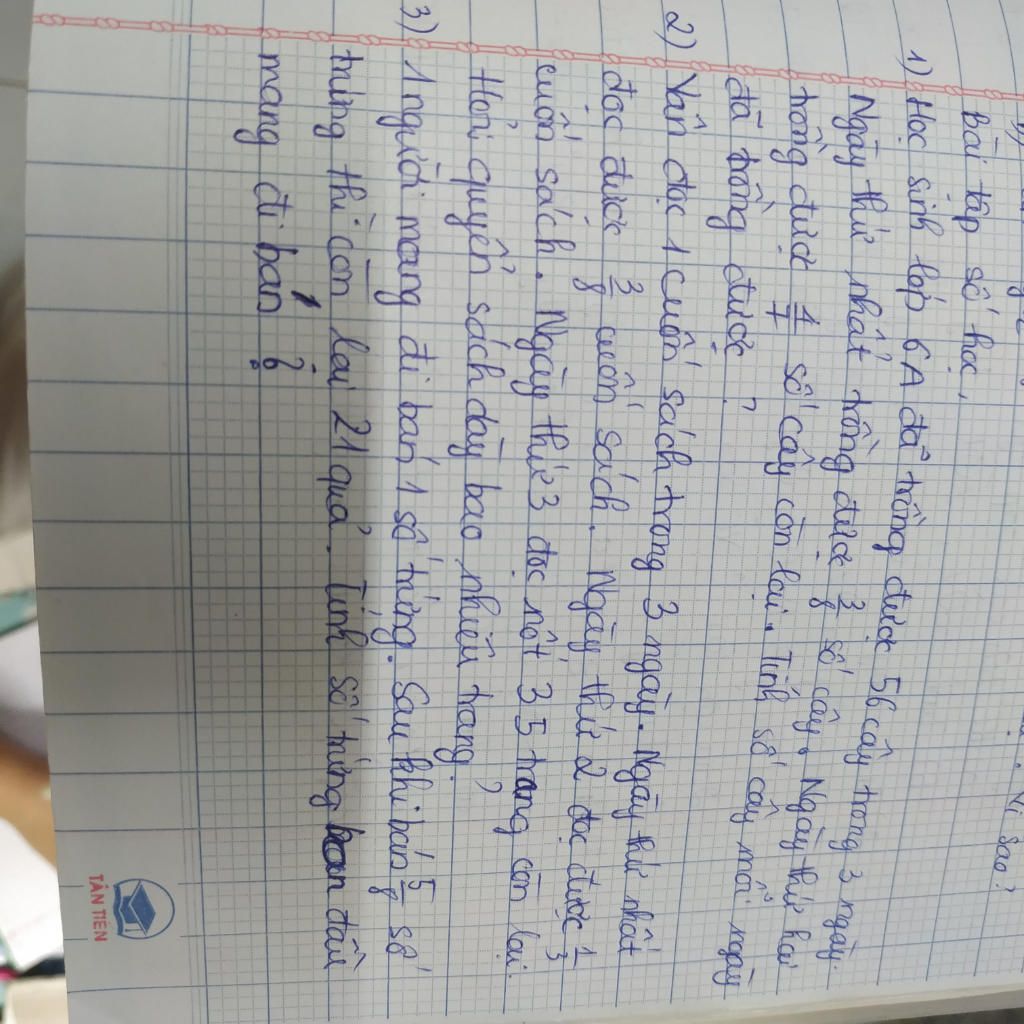 Vì sao?
Bài tập số học,
1) Học sinh lớp 6A đã trồng được 56 cây trong 3 ngày.
Ngày thứ nhất trồng được 3/8 số cây. Ngày thứ hai
trồng được 4/7 số cây còn lại. Tính số cây mỗi ngày
đã trồng được?
2) Vân đọc 1 cuốn sách trong 3 ngày. Ngày thứ nhất
đọc được 3/8 cuốn sách. Ngày thứ 2 đọc được 1/3
cuốn sách. Ngày thứ 3 đọc nốt 35 trang còn lại.
Hỏi quyển sách dày bao nhiêu trang?
3) 1 người mang đi bán 1 số trứng. Sau khi bán 5/8 số
trứng thì còn lại 21 quả. Tính số trứng ban đầu
mang đi bán?
TÂN TIẾN